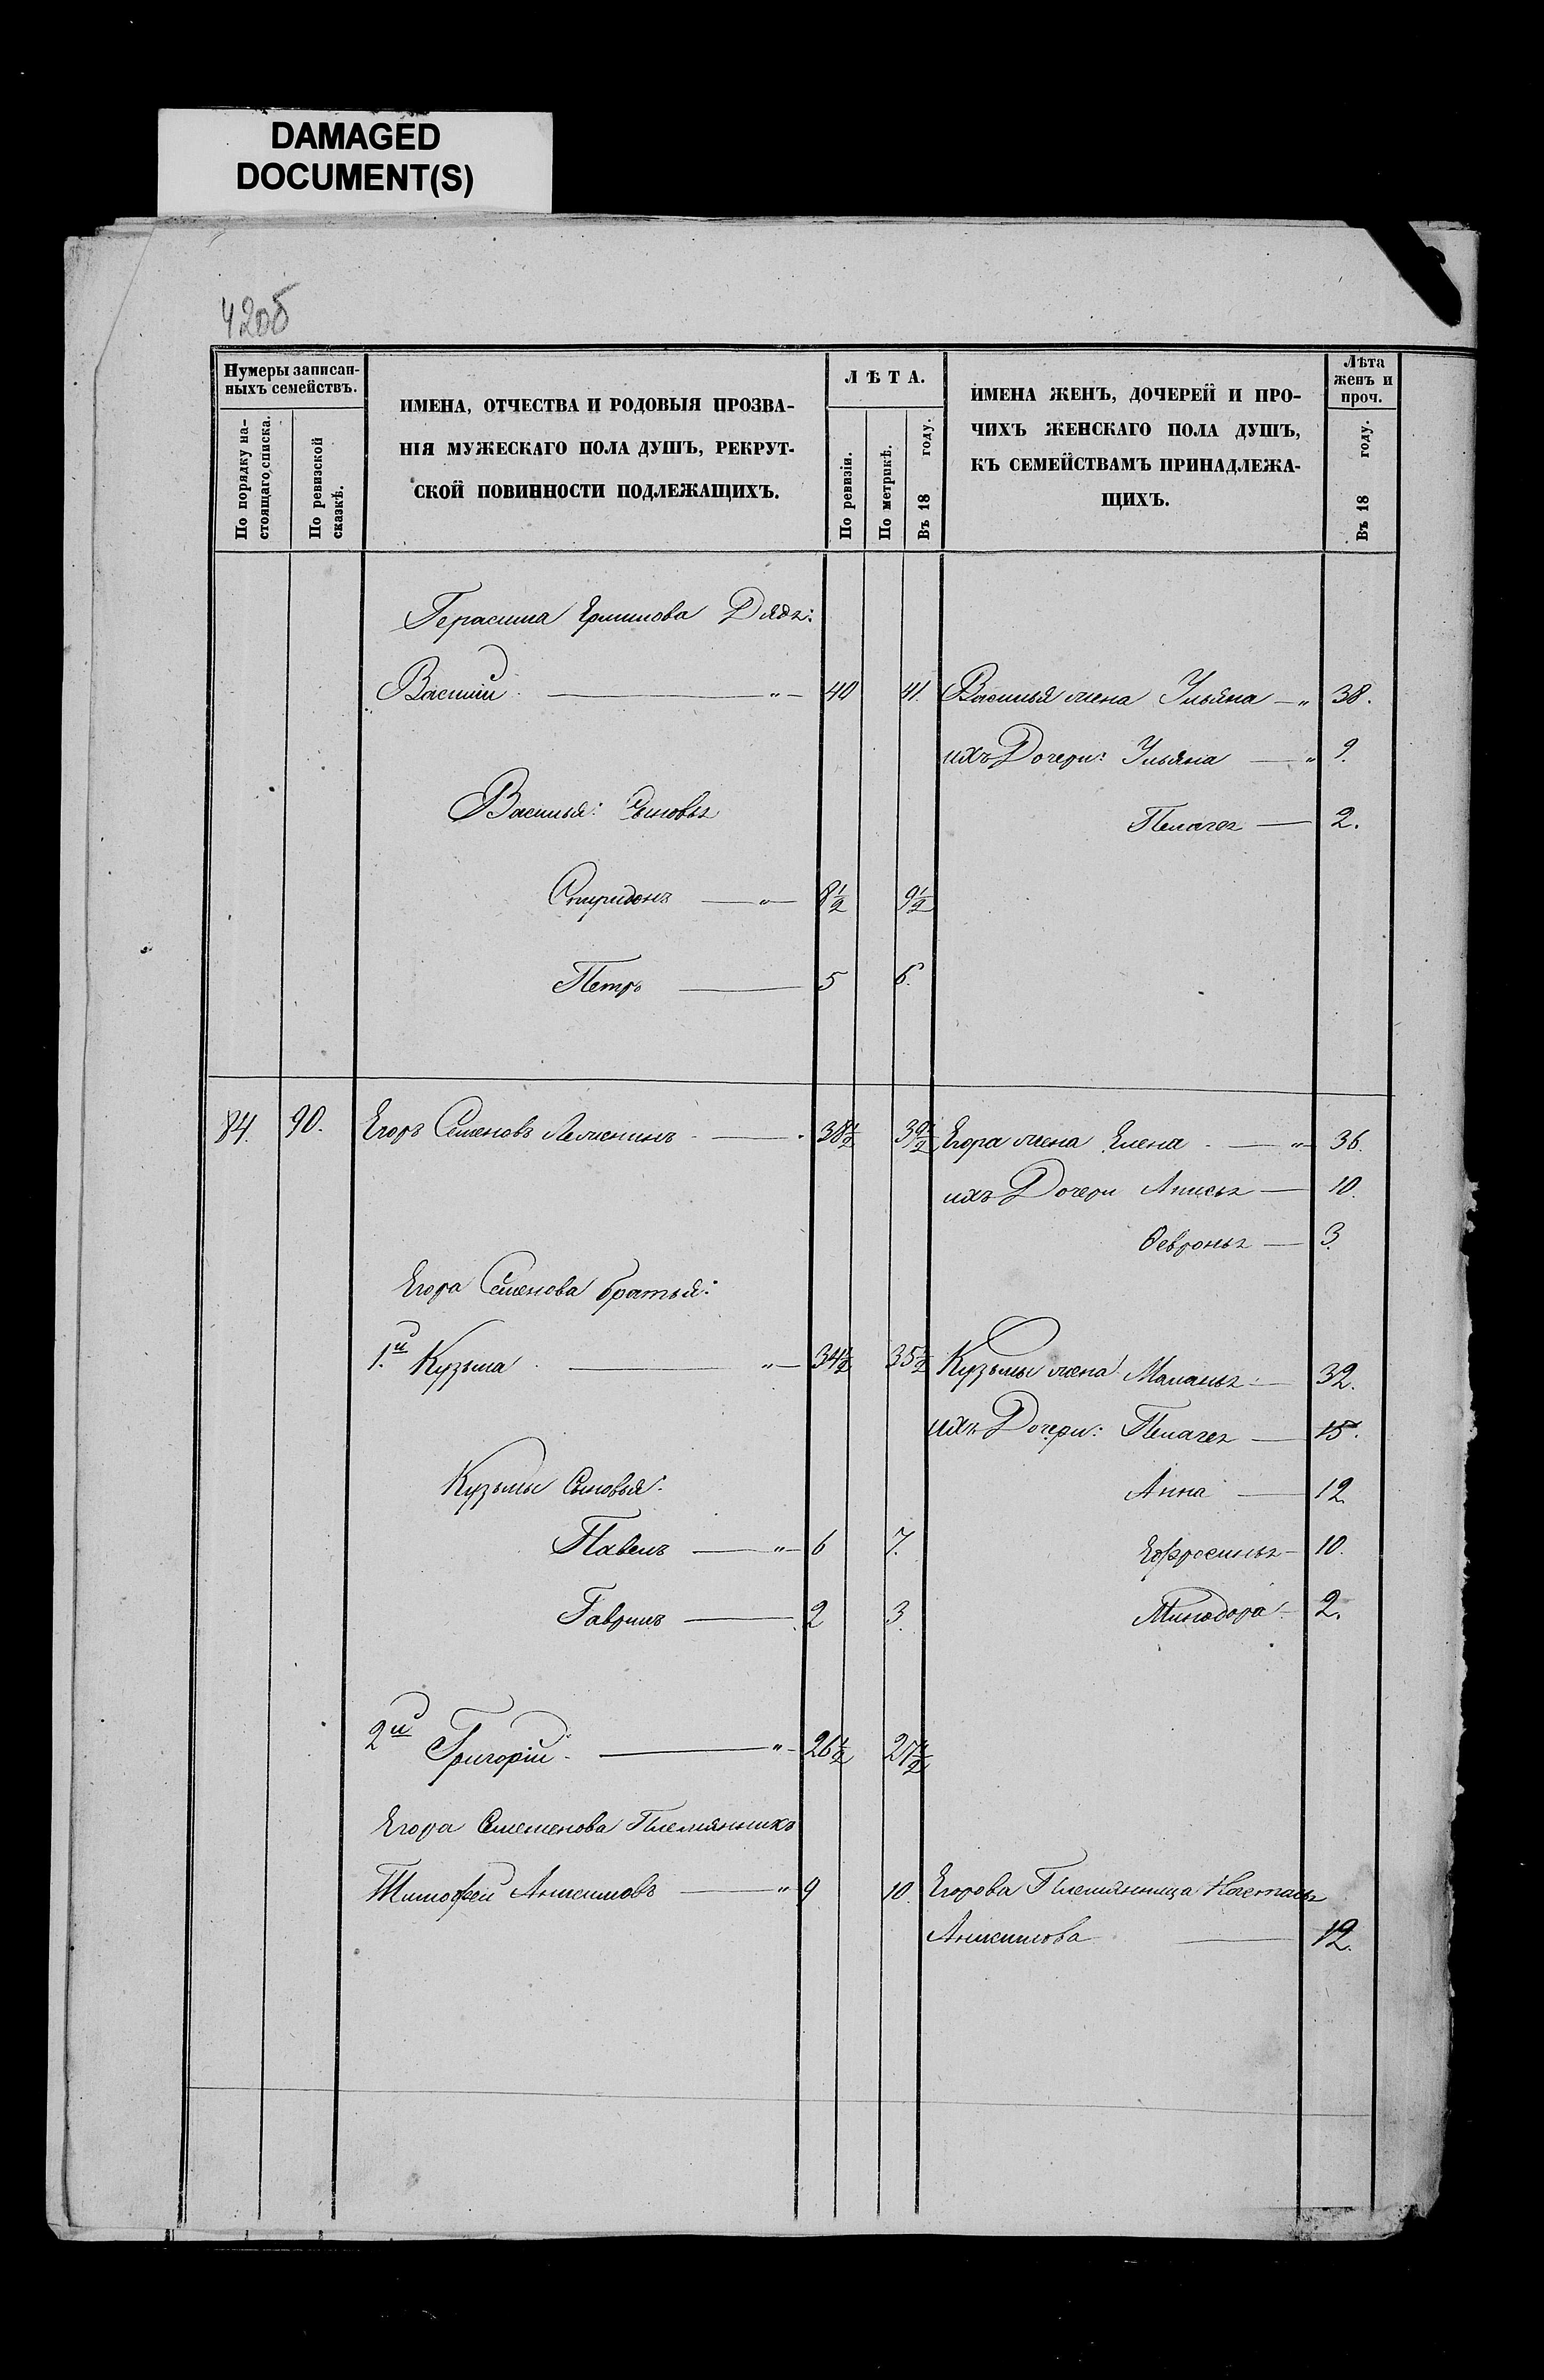 DAMAGED
DOCUMENT(S)
420б
Нумеры записан-
ныхъ семействъ.
По порядку на-
стоящаго списка.
По ревизской
сказкѣ.
ИМЕНА, ОТЧЕСТВА И РОДОВЫЯ ПРОЗВА-
НІЯ МУЖЕСКАГО ПОЛА ДУШЪ, РЕКРУТ-
СКОЙ ПОВИННОСТИ ПОДЛЕЖАЩИХЪ.
ЛѢТА.
По ревизіи.
По метрикѣ.
Въ 18 году.
ИМЕНА ЖЕНЪ, ДОЧЕРЕЙ И ПРО-
ЧИХЪ ЖЕНСКАГО ПОЛА ДУШЪ,
КЪ СЕМЕЙСТВАМЪ ПРИНАДЛЕЖА-
ЩИХЪ.
Лѣта
женъ и
проч.
Въ 18 году.
Герасима Ермилова Дядя:
Василій — " — 40 41. Василья жена Ульяна — " 38.
ихъ Дочери: Ульяна — " 9.
Василья: Сыновья
Пелагея — 2.
Спиридонъ — " — 8½ 9½
Петръ — 5 6.
84. 90. Егоръ Семеновъ — 38½ 39½ Егора жена Елена — " — 36.
ихъ Дочери Анисья — 10.
Ѳевронья — 3.
Егора Семенова братья:
1.й Кузьма — " — 34½ 35½ Кузьмы жена Маланья — 32.
ихъ Дочери: Пелагея — 15.
Кузьмы Сыновья:
Анна — 12
Павелъ — " — 6 7.
Ефросинья — 10.
Гаврилъ — 2 3.
Минодора — 2.
2й Григорій — " — 26½ 27½
Егора Семенова Племянникъ
Тимофей Анисимовъ — " 9 10. Егорова Племянница Настасья
Анисимова — 12.